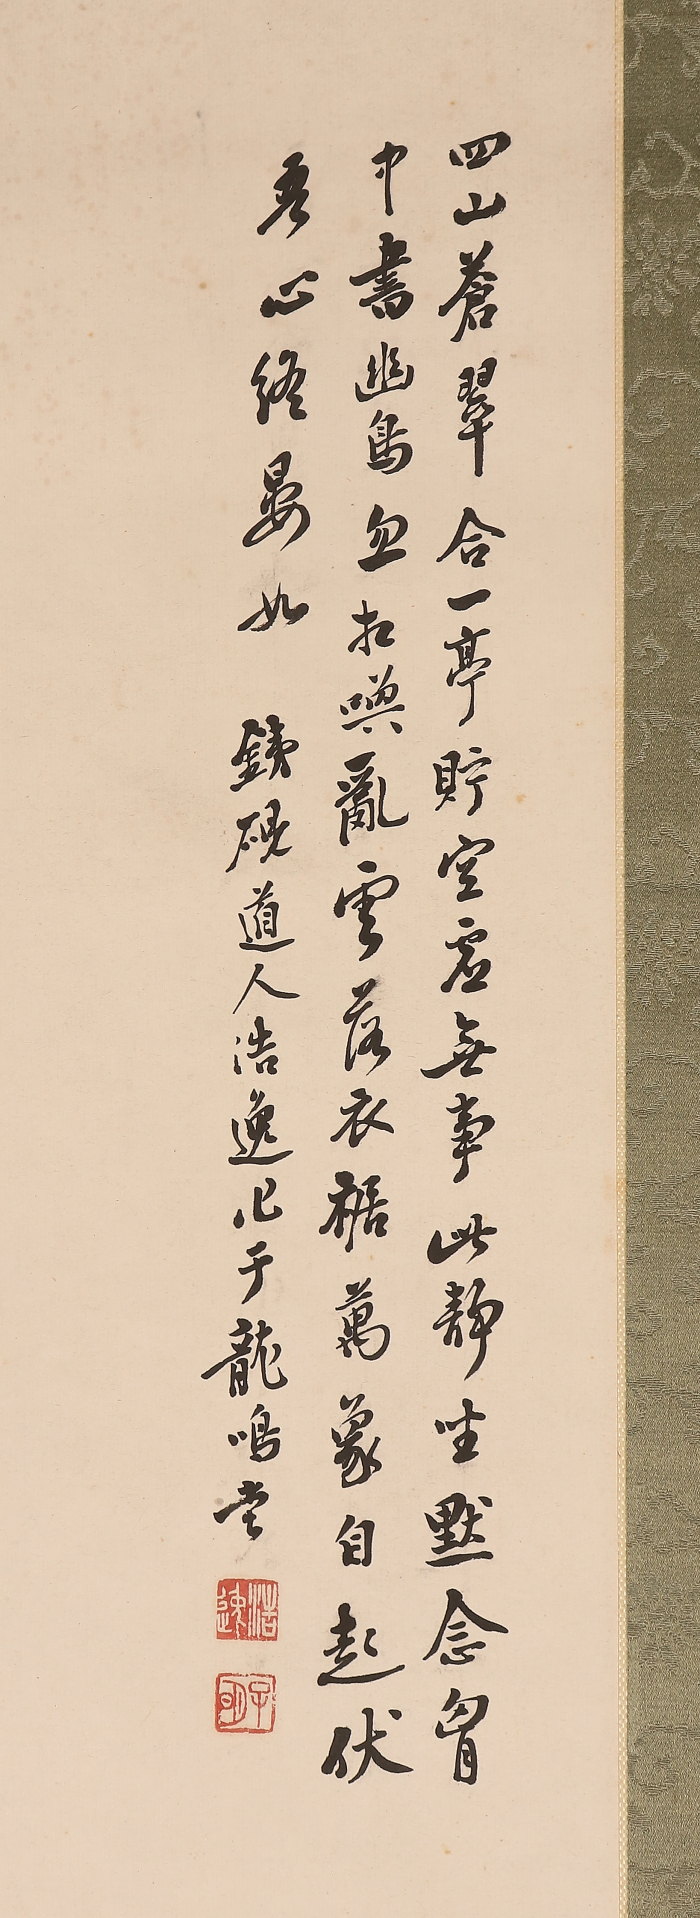 四山蒼翠合一亭貯空虛無事此靜坐默念胷
中書幽鳥忽相喚亂雲落衣裾萬象自起伏
吾心終晏如 鐵硯道人浩逸作于龍鳴堂
浩逸
子明